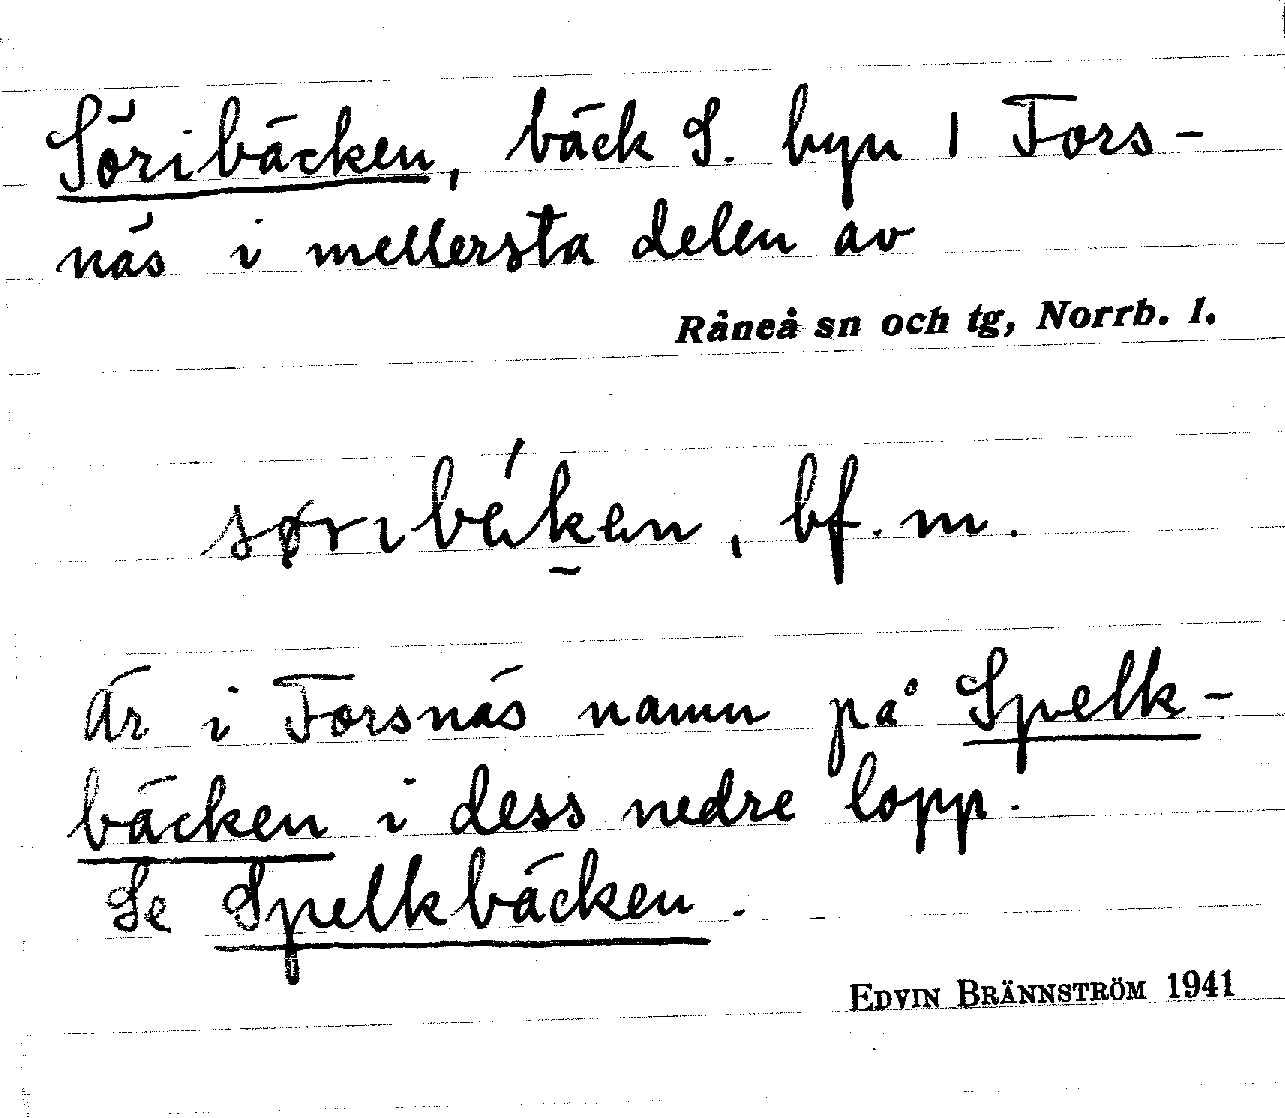 Söribäcken, bäck S. byn i Fors-
näs i mellersta delen av
Råneå sn och tg, Norrb. l.
søribäken, bf. m.
Är i Forsnäs namn på Spelk-
bäcken i dess nedre lopp.
Se Spelkbäcken.
EDVIN BRÄNNSTRÖM 1941